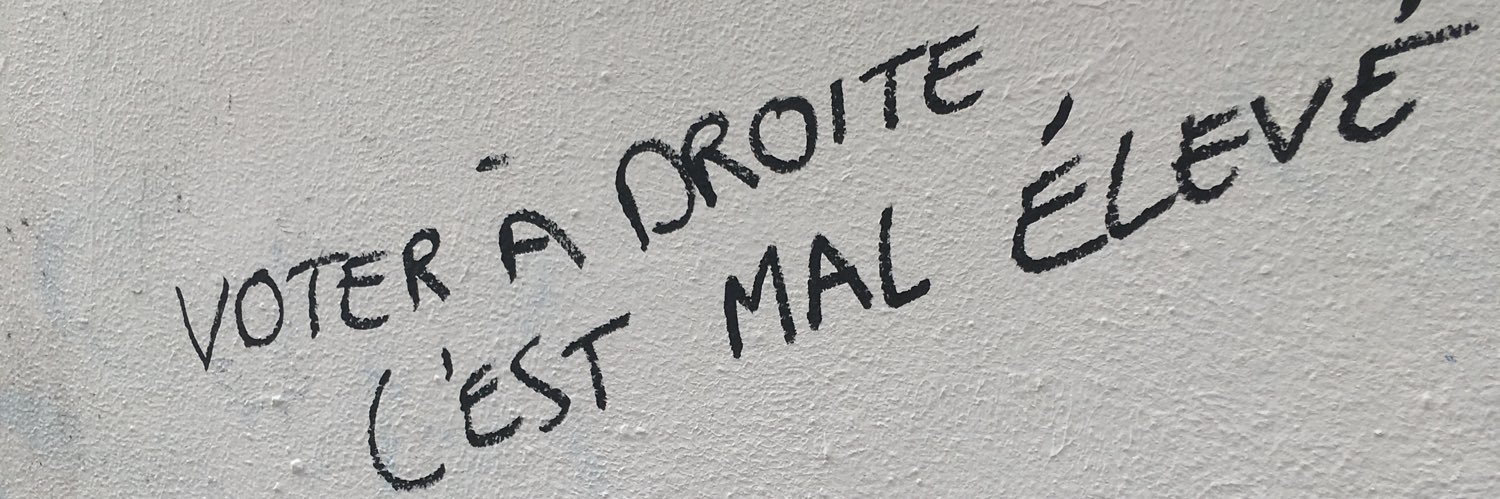 VOTER À DROITE
C'EST MAL ÉLEVÉ